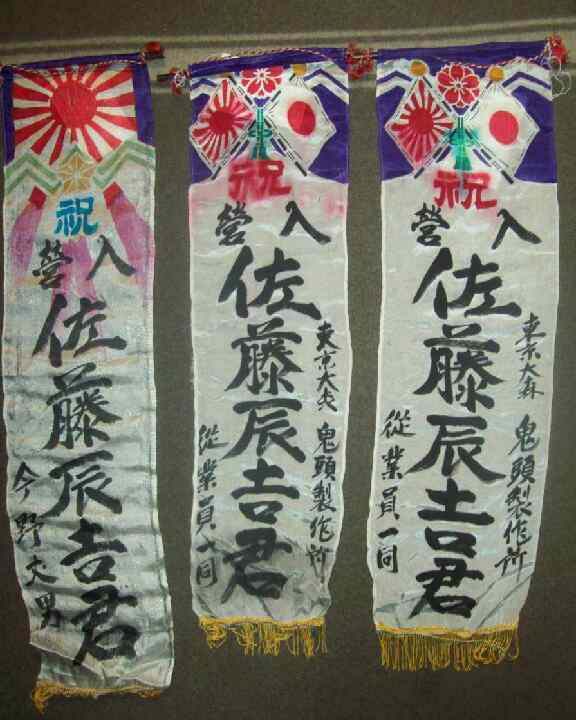 祝
入營
佐藤辰吉君
今野文男
祝
入營
東京大森 鬼頭製作所
佐藤辰吉君
從業員一同
祝
入營
東京大森 鬼頭製作所
佐藤辰吉君
從業員一同